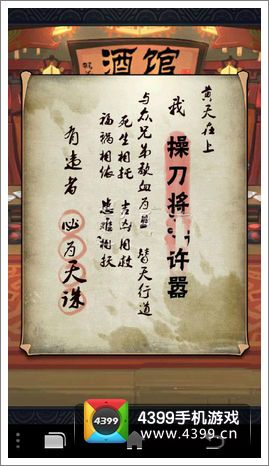 酒馆
黄天在上
我 操刀将 许嚣
与众兄弟歃血为盟 替天行道
死生相托 吉凶相救
福祸相依 患难相扶
有违者 必为天诛
4399
4399手机游戏
www.4399.cn